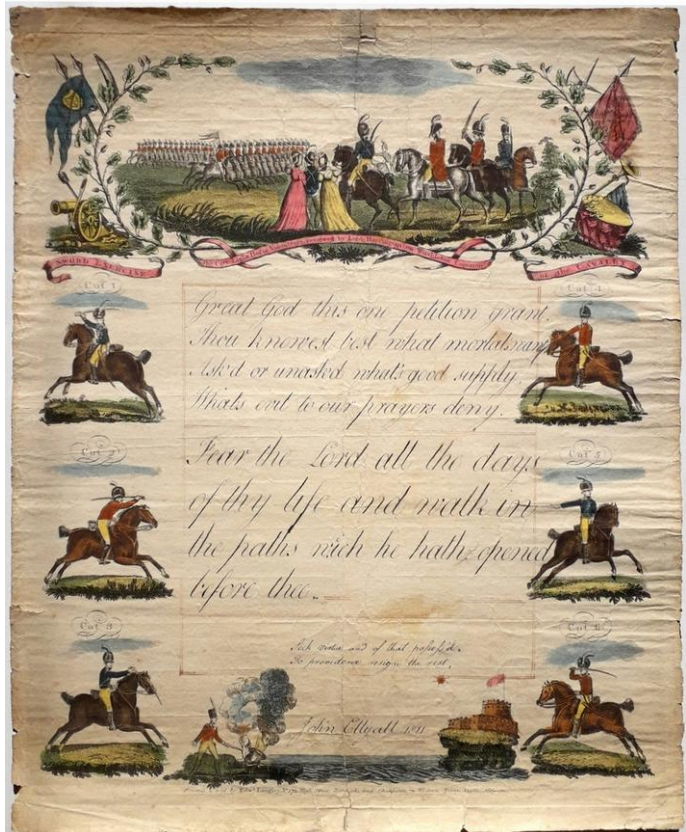 SWORD EXERCISE
OF THE CAVALRY
Cut 1
Cut 4
Great God this one petition grant.
Thou knowest best what mortals
Ask'd or unask'd what's good supply.
Whats evil to our prayers deny.
Cut 2
Cut 5
Fear the Lord all the days
of thy life and walk in
the paths wich he hath opened
before thee..
Cut 3
Cut 6
Seek virtue and of that possess'd.
To providence resign the rest.
John Ellyall 1811